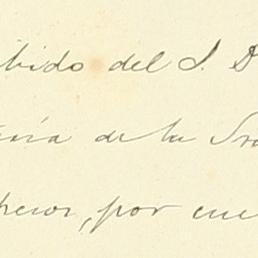 bido del S. D
ría de la Sra
pesos, por cue